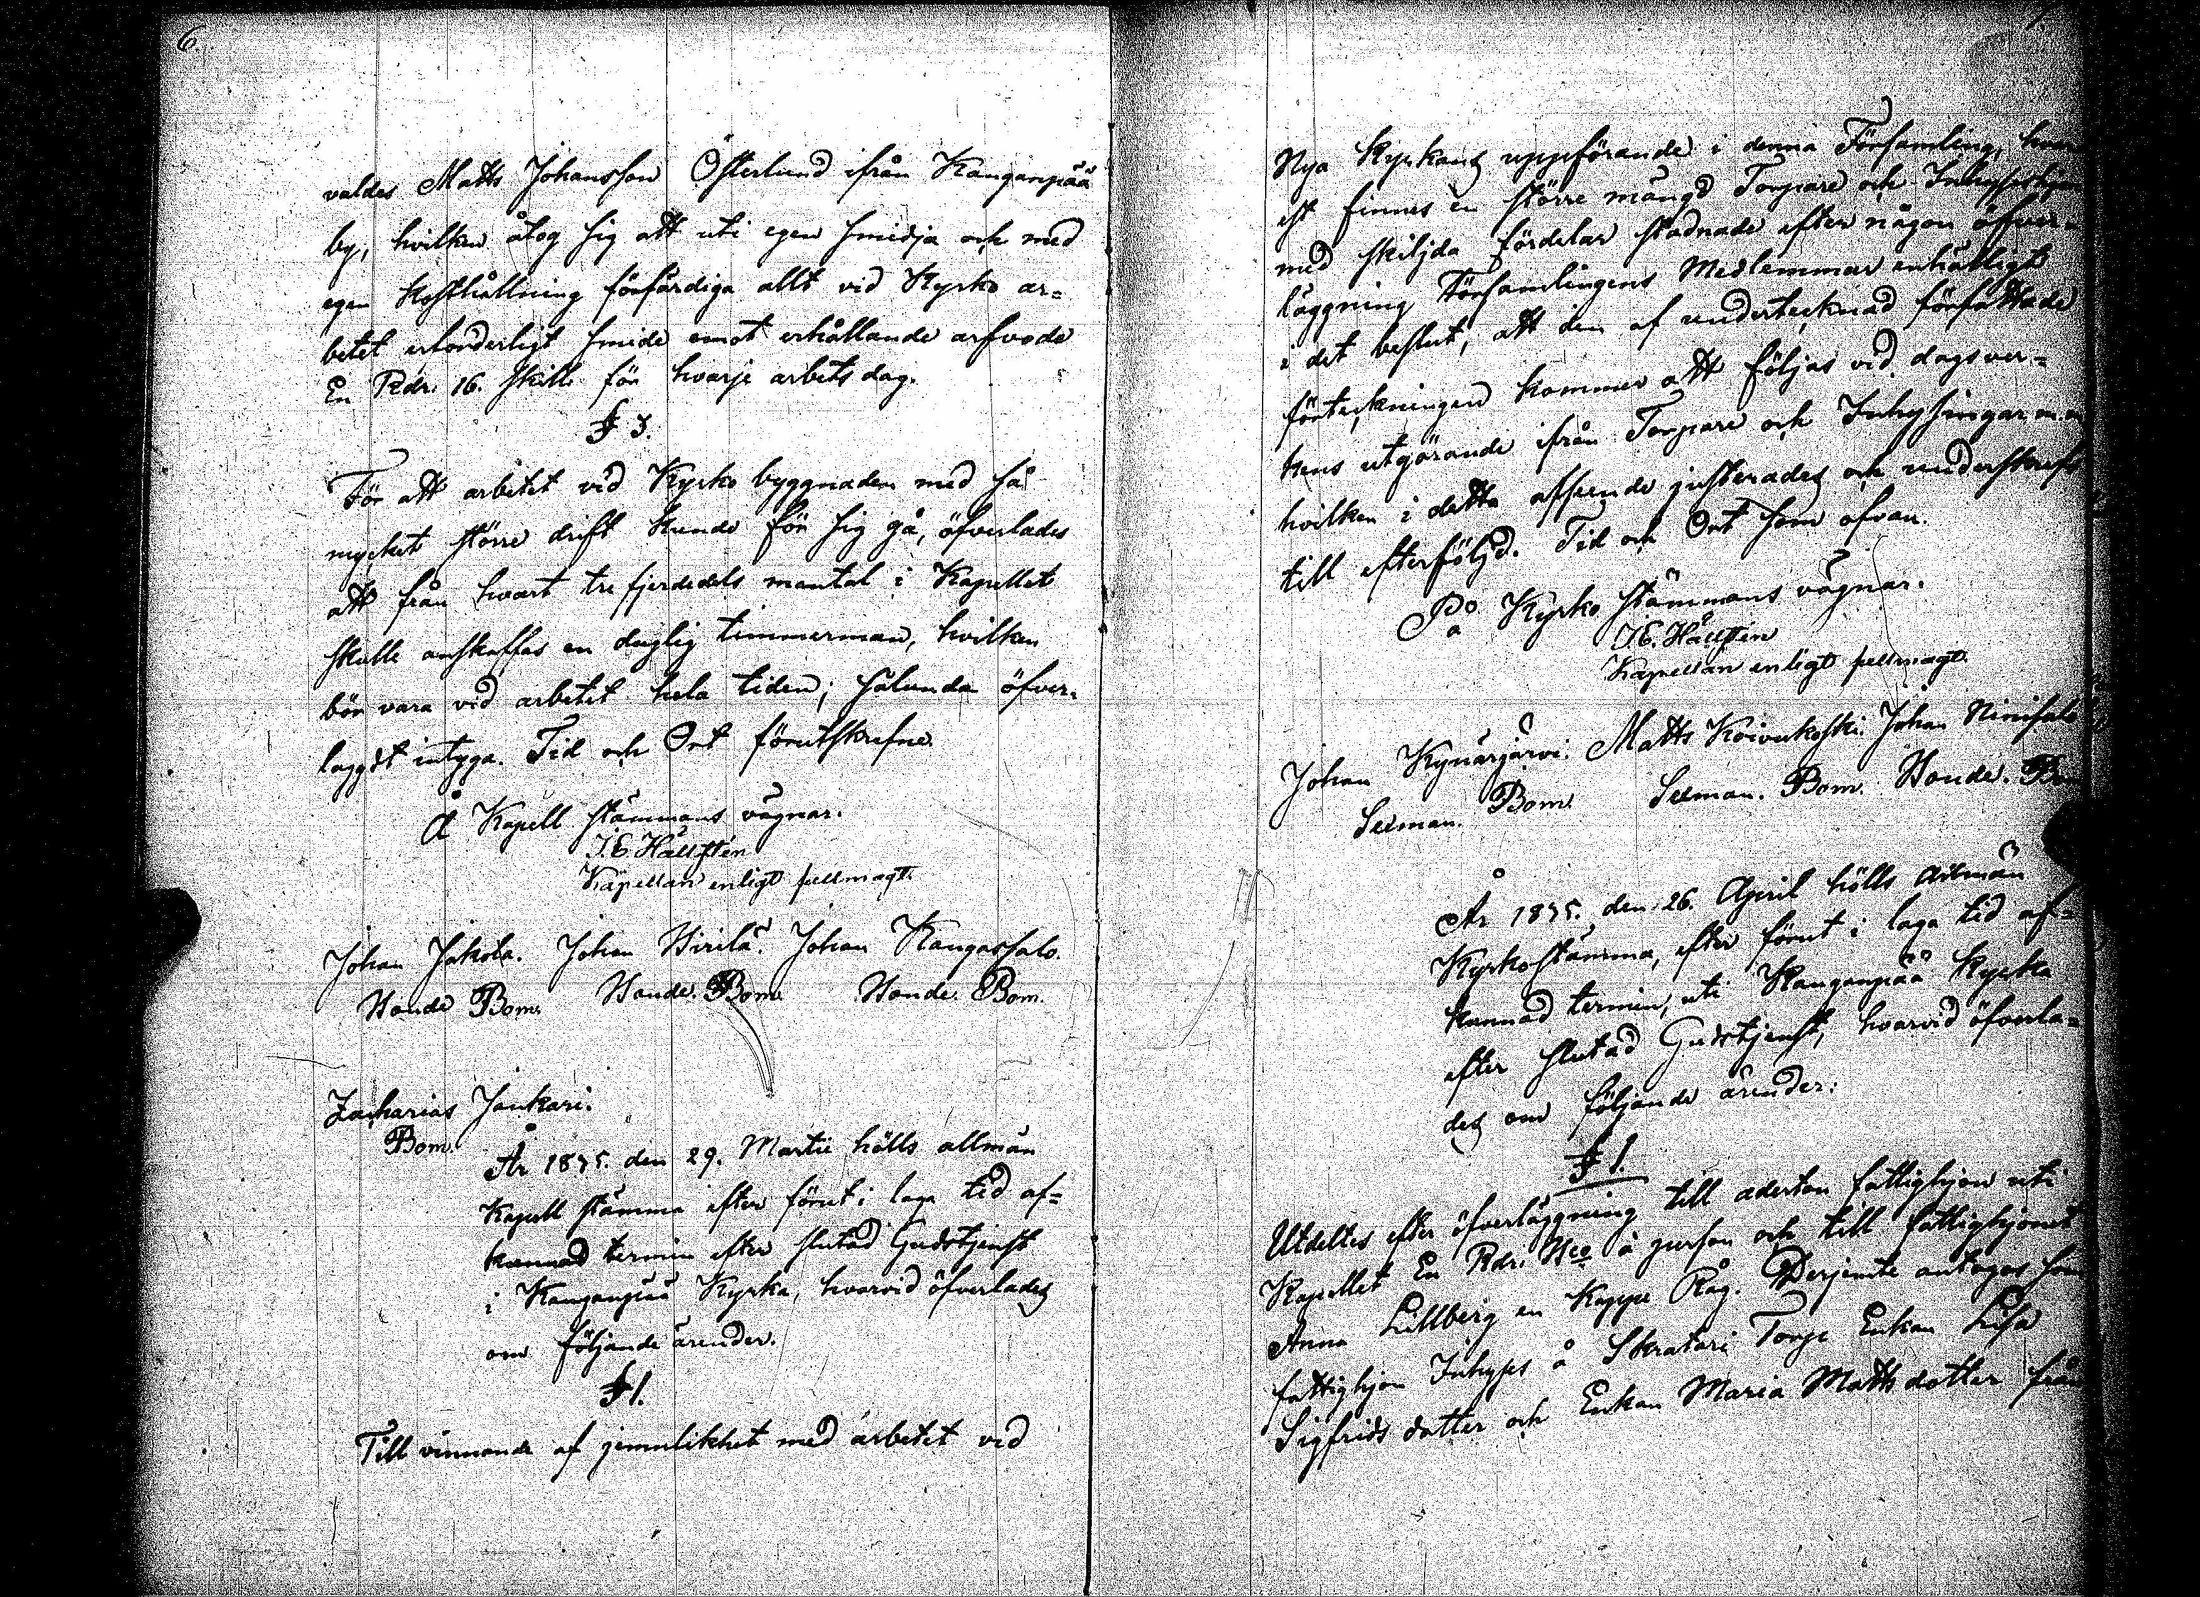 6.
valdes Matts Johansson Österlund ifrån Kangangää
by, hvilken åtog sig att uti egen smidja och med
egen kosthållning förfärdiga allt vid Kyrko ar=
betet erforderligt smide emot erhållande arfvode
En Rdr. 16. skill. för hvarje arbetsdag.
§ 3.
För att arbetet vid Kyrko byggnaden med så
mycket större drift kunde för sig gå, öfverlades
att från hvart tre fjerdedels mantal i Kapellet
skulle anskaffas en duglig timmerman, hvilken
bör vara vid arbetet hela tiden; sålunda öfver=
lagdt intyga. Tid och Ort förutskrefne
Å Kapell stämmans vägnar.
J. E. Hällstén
Kapellan enligt fullmagt.
Johan Jakola. Johan Wirilä. Johan Kangassalo.
Bonde Bom. Bonde. Bom. Bonde. Bom.
Zacharias Jankari.
Bom.
År 1835. den 29. Martii hölls allmän
Kapell stämma efter förut i laga tid af=
kunnad termin efter slutad Gudstjenst
i Kangangää Kyrka, hvarvid öfverlades
om följande ärender.
§ 1.
Till vinnande af jemnlikhet med arbetet vid
Nya Kyrkans uppförande i denna Församling, hvar
est finnes en större mängd Torpare och
med skiljda fördelar stadnade efter någon öfver=
läggning Församlingens Medlemmar enhälligt
i det beslut, att den af undertecknad författade
förteckningen kommer att följas vid dagsver=
kens utgörande ifrån Torpare och Inhysingar m.m
hvilken i detta afseende justerades och underskrefs
till efterföljd. Tid och Ort som ofvan.
På Kyrko stämmans vägnar.
J. E. Hällstén
Kapellan enligt fullmagt.
Johan Kynärjärvi. Matts Koivukoski. Johan Ninisalo
Sexman. Bom. Sexman. Bom. Bonde. Bom
År 1835. den 26. April hölls allmän
Kyrkostämma, efter förut i laga tid af=
kunnad termin, uti Kangangää Kyrka
efter slutad Gudstjenst, hvarvid öfverla=
des om följande ärender:
§ 1.
Utdeltes efter öfverläggning till aderton fattighjon uti
Kapellet En Rdr. Bco å person och till fattighjonet
Anna Lillberg en Kappe Råg. Derjemte antogos som
fattighjon Inhyses å Skratari Torp Enkan Lisa
Sigfrids dotter och Enkan Maria Matts dotter från